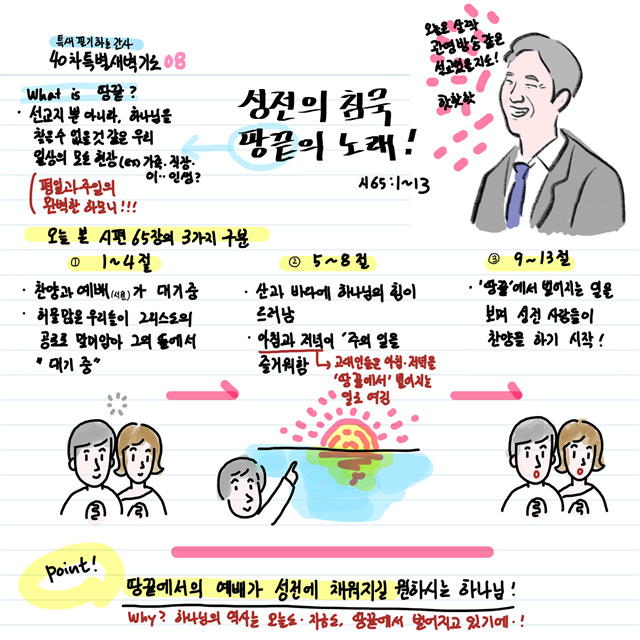 특새 필기하는 간사
40차특별새벽기도 08
What is 땅끝?
· 선교지 뿐 아니라, 하나님을
찾을 수 없을 것 같은 우리
일상의 모든 현장 (ex) 가족·직장·
이·· 인생?
평일과 주일의
완벽한 하모니!!!
성전의 침묵
땅끝의 노래!
시65:1~13
오늘은 살짝
관영방송 같은
설교였을지도!
핫핫핫
오늘 본 시편 65장의 3가지 구분
① 1~4절
· 찬양과 예배(서원)가 대기중
· 허물 많은 우리들이 그리스도의
공로로 말미암아 그의 뜰에서
"대기 중"
② 5~8절
· 산과 바다에 하나님의 힘이
드러남
· 아침과 저녁이 '주의 일을
즐거워함
고대인들은 아침·저녁을
'땅끝에서' 벌어지는
일로 여김
③ 9~13절
· '땅끝'에서 벌어지는 일을
보며 성전 사람들이
찬양을 하기 시작!
point!
땅끝에서의 예배가 성전에 채워지길 원하시는 하나님!
Why? 하나님의 역사는 오늘도·지금도, 땅끝에서 벌어지고 있기에·!